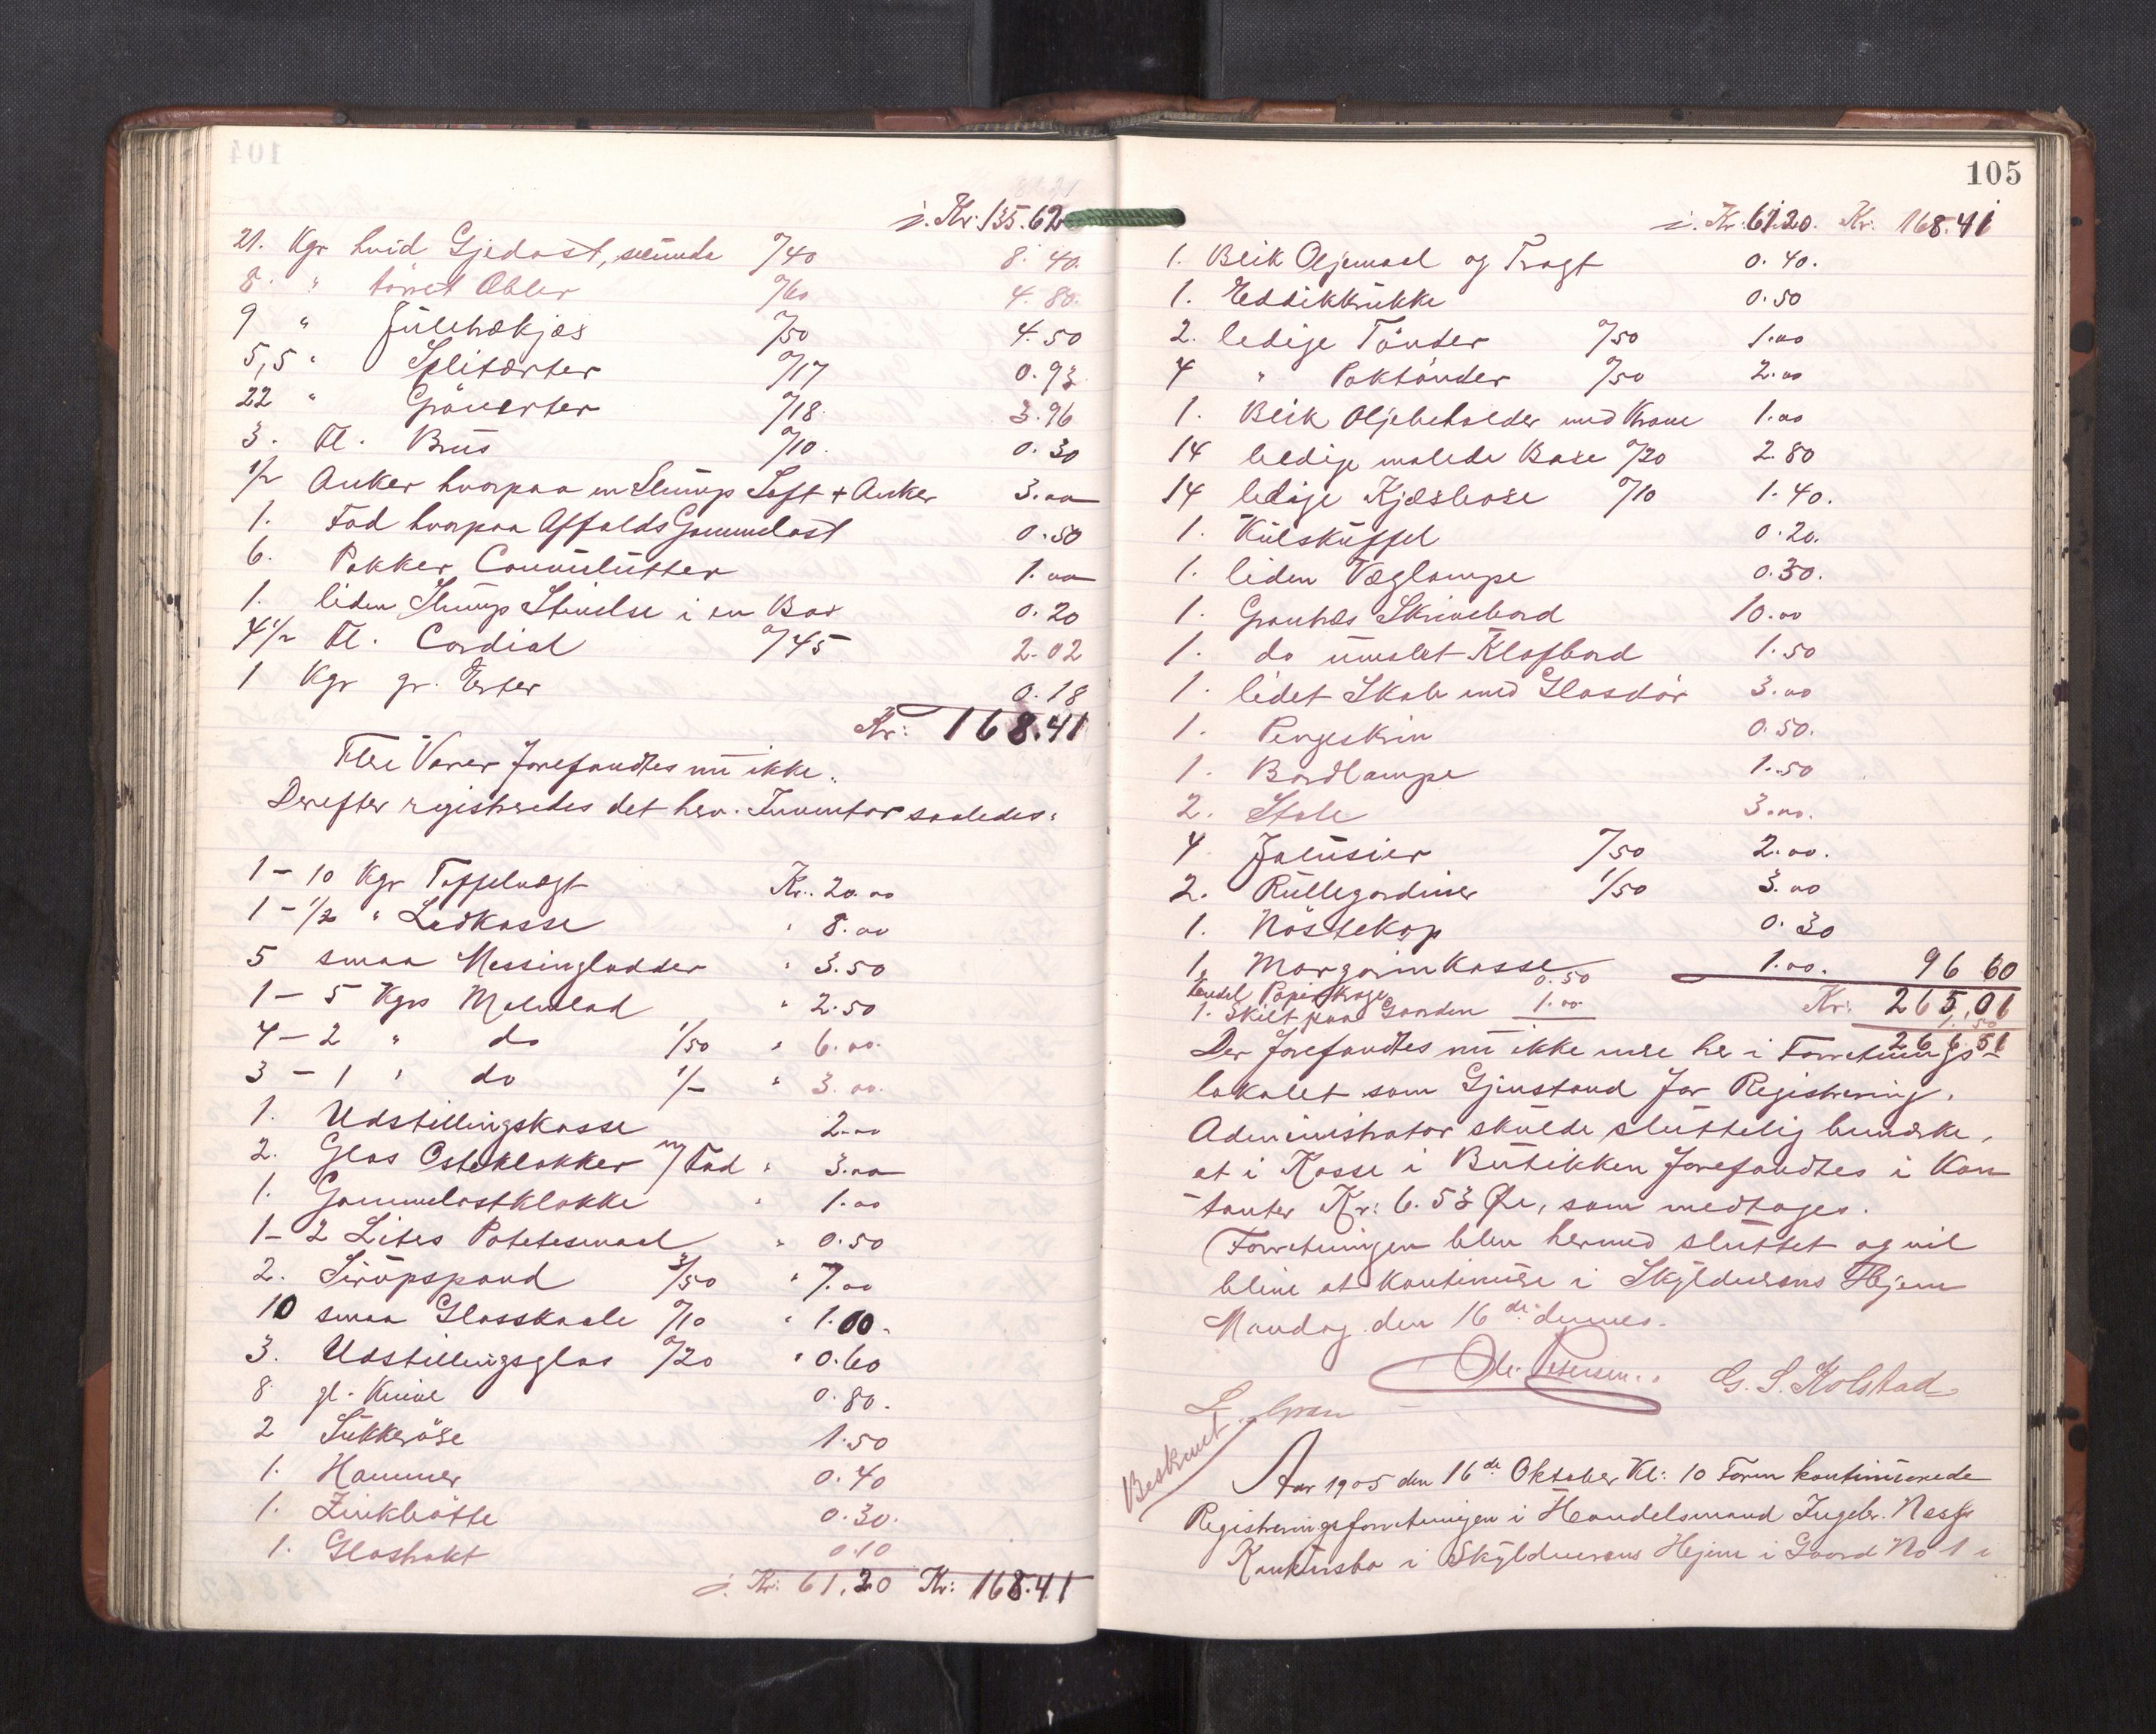 104
i. Kr. 135.62
21. Kgr hvid Gjedost, secunda 0/40 8.40.
8. " törret Æbler 0/60 4.80.
9 " Julehækjæs 0/50 4.50
5,5 " Spliterter 0/17 0.93
22 " Grönerter 0/18. 3.96
3. Fl. Brus 0/10. 0.30
1/2 Anker hvorpaa en Slump Saft + Anker 3.00
1. Fad hvorpaa Affalds Gammelost 0.50
6. Pakker 1.00
1. liden Slump Stivelse i en Bax 0.20
4 1/2 Fl. Cordial 0/45 2.02
1 Kgr gr. Erter 0.18
Kr: 168.41
Flere Varer forefandtes nu ikke.
Derefter registreredes det herv. Inventar saaledes:
1 - 10 Kgr Taffelvægt Kr. 20.00
1 - 1/2 " Lodkasse " 8.00
5 smaa Messinglodder " 3.50
1 - 5 Kgrs Malmlod " 2.50
4 - 2 " do 1/50 " 6.00.
3 - 1 " do 1/- " 3.00.
1. Udstillingskasse 2.00
2. Glas Osteklokker m/ Fad " 3.00
1. Gammelostklokke " 1.00
1 - 2 Liters Potetesmaal " 0.50
2. Sirupspand 3/50 " 7.00
10 smaa Glasskaale 0/10 " 1.00.
3. Udstillingsglas 0/20 " 0.60
8 gl. Knive 0.80.
2 Sukkeröse 1.50
1. Hammer 0.40
1. Zinkbötte 0.30.
1. Glastrakt 0.10
i. Kr: 61,20 Kr: 168.41
105
i. Kr. 61.20. Kr. 168.41
1. Blik Oljemaal og Tragt 0.40.
1. Eddikkrukke 0.50
2. ledige Tönder 0/50 1.00
4 " Paktönder 0/50 2.00
1. Blik Oljebeholder med Krane 1.00
14 ledige malede Baxe 0/20 2.80
14 ledige Kjæsbaxe 0/10 1.40.
1. Kulskuffel 0.20.
1. liden Væglampe 0.30.
1. Grantræs Skrivebord 10.00
1. do umalet Klafbord 1.50
1. lidet Skab med Glasdör 3.00
1. Pengeskrin 0.50.
1. Bordlampe 1.50
2. Stole 3.00.
4 Jalusier 0/50 2.00.
2. Rullegardiner 1/50 3.00
1. Nöstekop 0.30
1. Margarinkasse 1.00. 96 60
endel Papir Krage 0.50
Kr: 265,01
1. Skilt paa Gaarden 1.00
1.50
266.51
Der forefandtes nu ikke mere her i Forretnings-
lokalet som Gjenstand for Registrering.
Administrator skulde sluttelig bemærke,
at i Kasse i Butikken forefandtes i Kon
tanter Kr: 6.53 Øre, som medtages.
Forretningen blev hermed sluttet og vil
blive at kontinuere i Skyldnerens Hjem
Mandag den 16de dennes.
Ole Petersen. G. S. Kolstad
L. Gran
Beskrevet
Aar 1905 den 16de Oktober Kl: 10 Form kontinuerede
Registreringsforretningen i Handelsmand Ingebr. Næss
Konkursbo i Skyldnerens Hjem i Gaard No 1 i